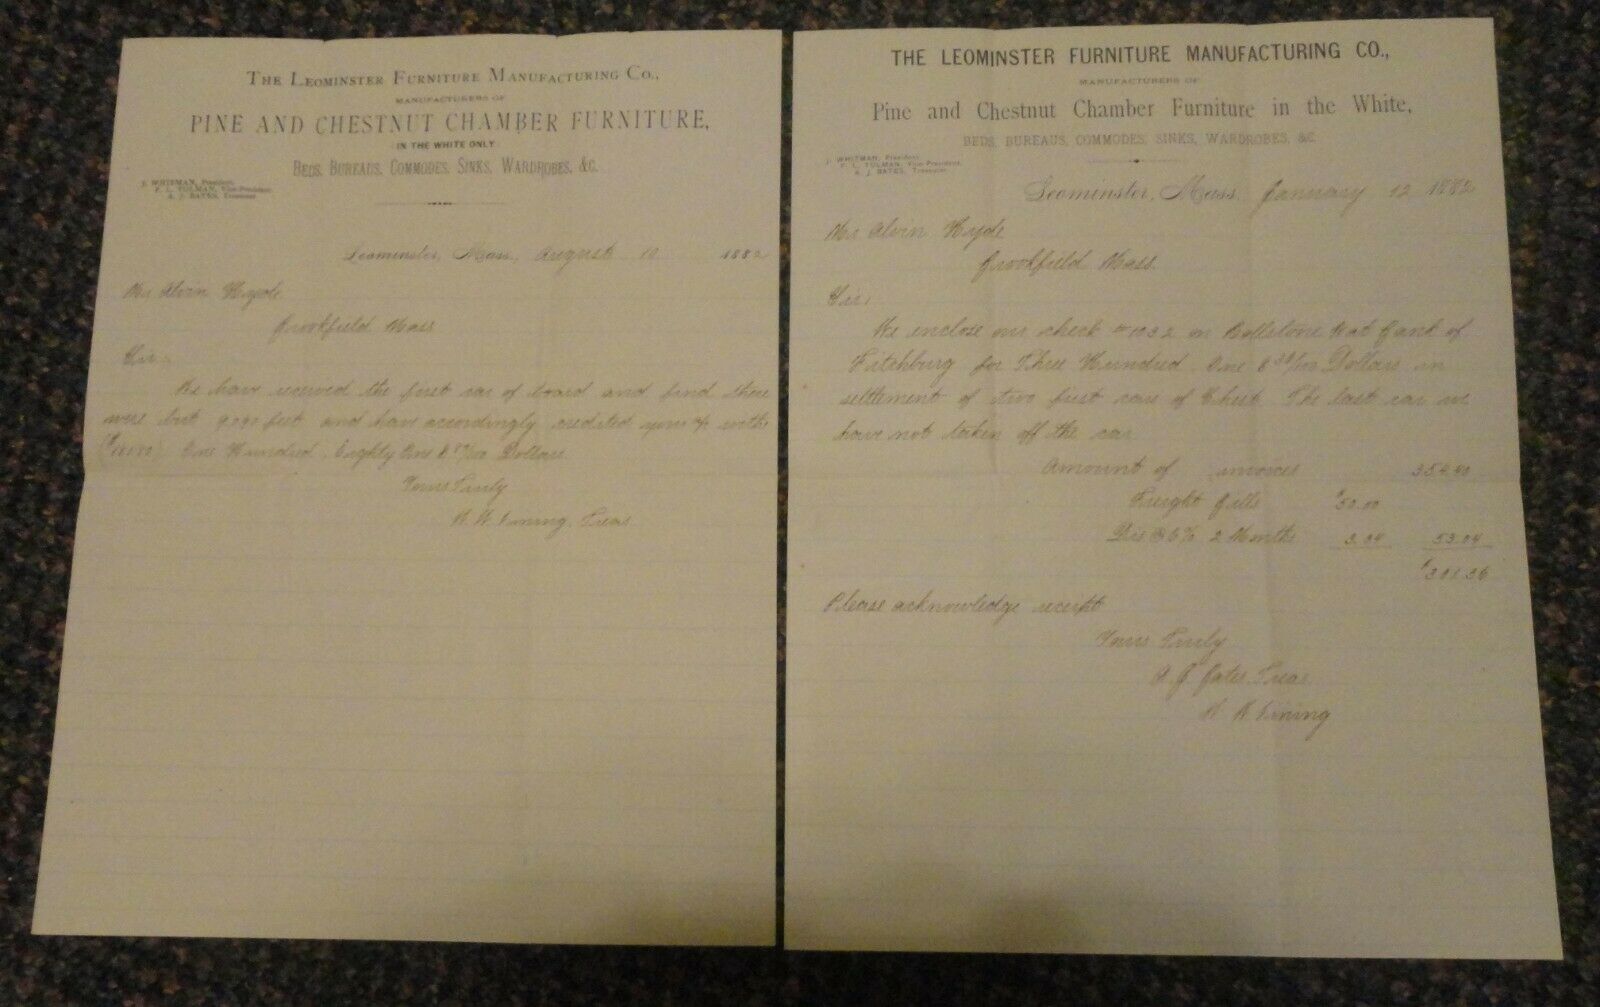 THE LEOMINSTER FURNITURE MANUFACTURING CO.,
MANUFACTURERS OF
PINE AND CHESTNUT CHAMBER FURNITURE,
IN THE WHITE ONLY
BEDS, BUREAUS, COMMODES, SINKS, WARDROBES, &C.
J. WHITMAN, President.
F. L. TOLMAN, Vice-President.
A. J. BATES, Treasurer
Leominster, Mass., August 10 1882
Mr Alvin Hyde
Brookfield Mass
Sir,
We have received the first car of board and find there
were but feet and have accordingly credited your % with
One Hundred, Eighty One & Dollars
Yours Truly
Vining, Treas
THE LEOMINSTER FURNITURE MANUFACTURING CO.,
MANUFACTURERS OF
Pine and Chestnut Chamber Furniture in the White,
BEDS, BUREAUS, COMMODES, SINKS, WARDROBES, &C.
J. WHITMAN, President.
F. L. TOLMAN, Vice-President.
A. J. BATES, Treasurer
Leominster, Mass. January 12 1882
Mr Alvin Hyde
Brookfield Mass.
Sir,
We enclose our check # 1032 on Nat Bank of
Fitchburg for Three Hundred One & 36/100 Dollars in
settlement of two first cars of Chest. The last car we
have not taken off the car
Amount of invoices 354.40
Freight Bills $50.00
Dis @ 6% 2 Months 3.04 53.04
$301.36
Please acknowledge receipt
Yours Truly
A J Bates Treas
Vining